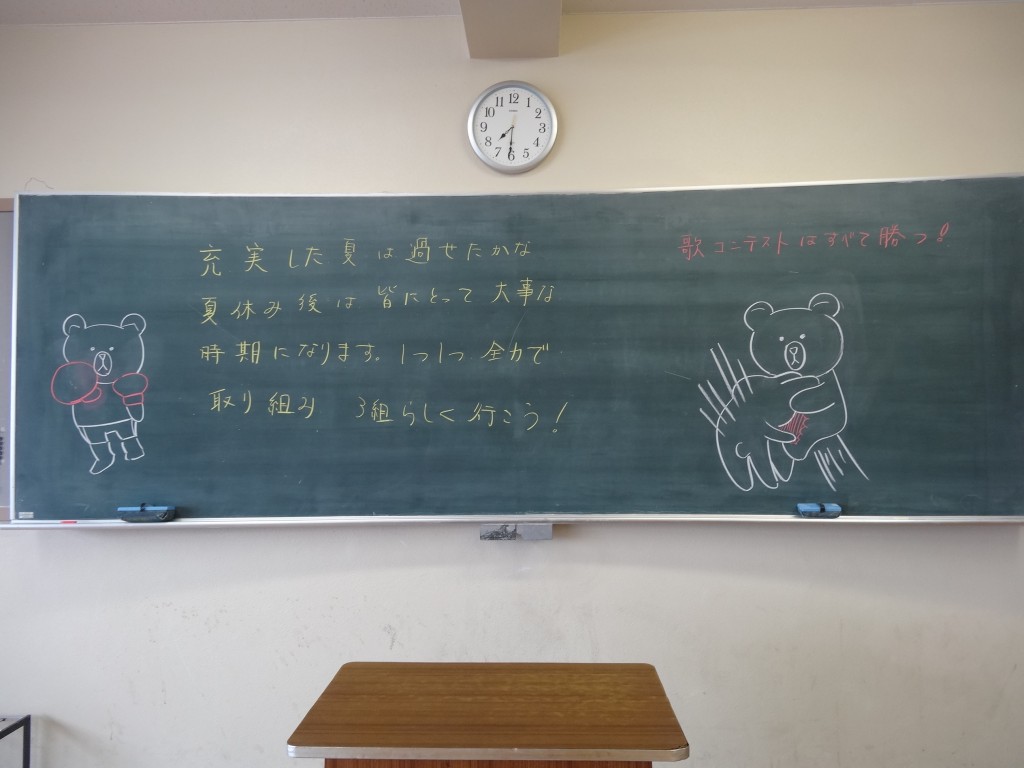 充実した夏は過せたかな
夏休み後は皆にとって大事な
時期になります。1つ1つ全力で
取り組み 3組らしく行こう!
歌コンテストはすべて勝つ!
12
1
2
3
4
5
6
7
8
9
10
11